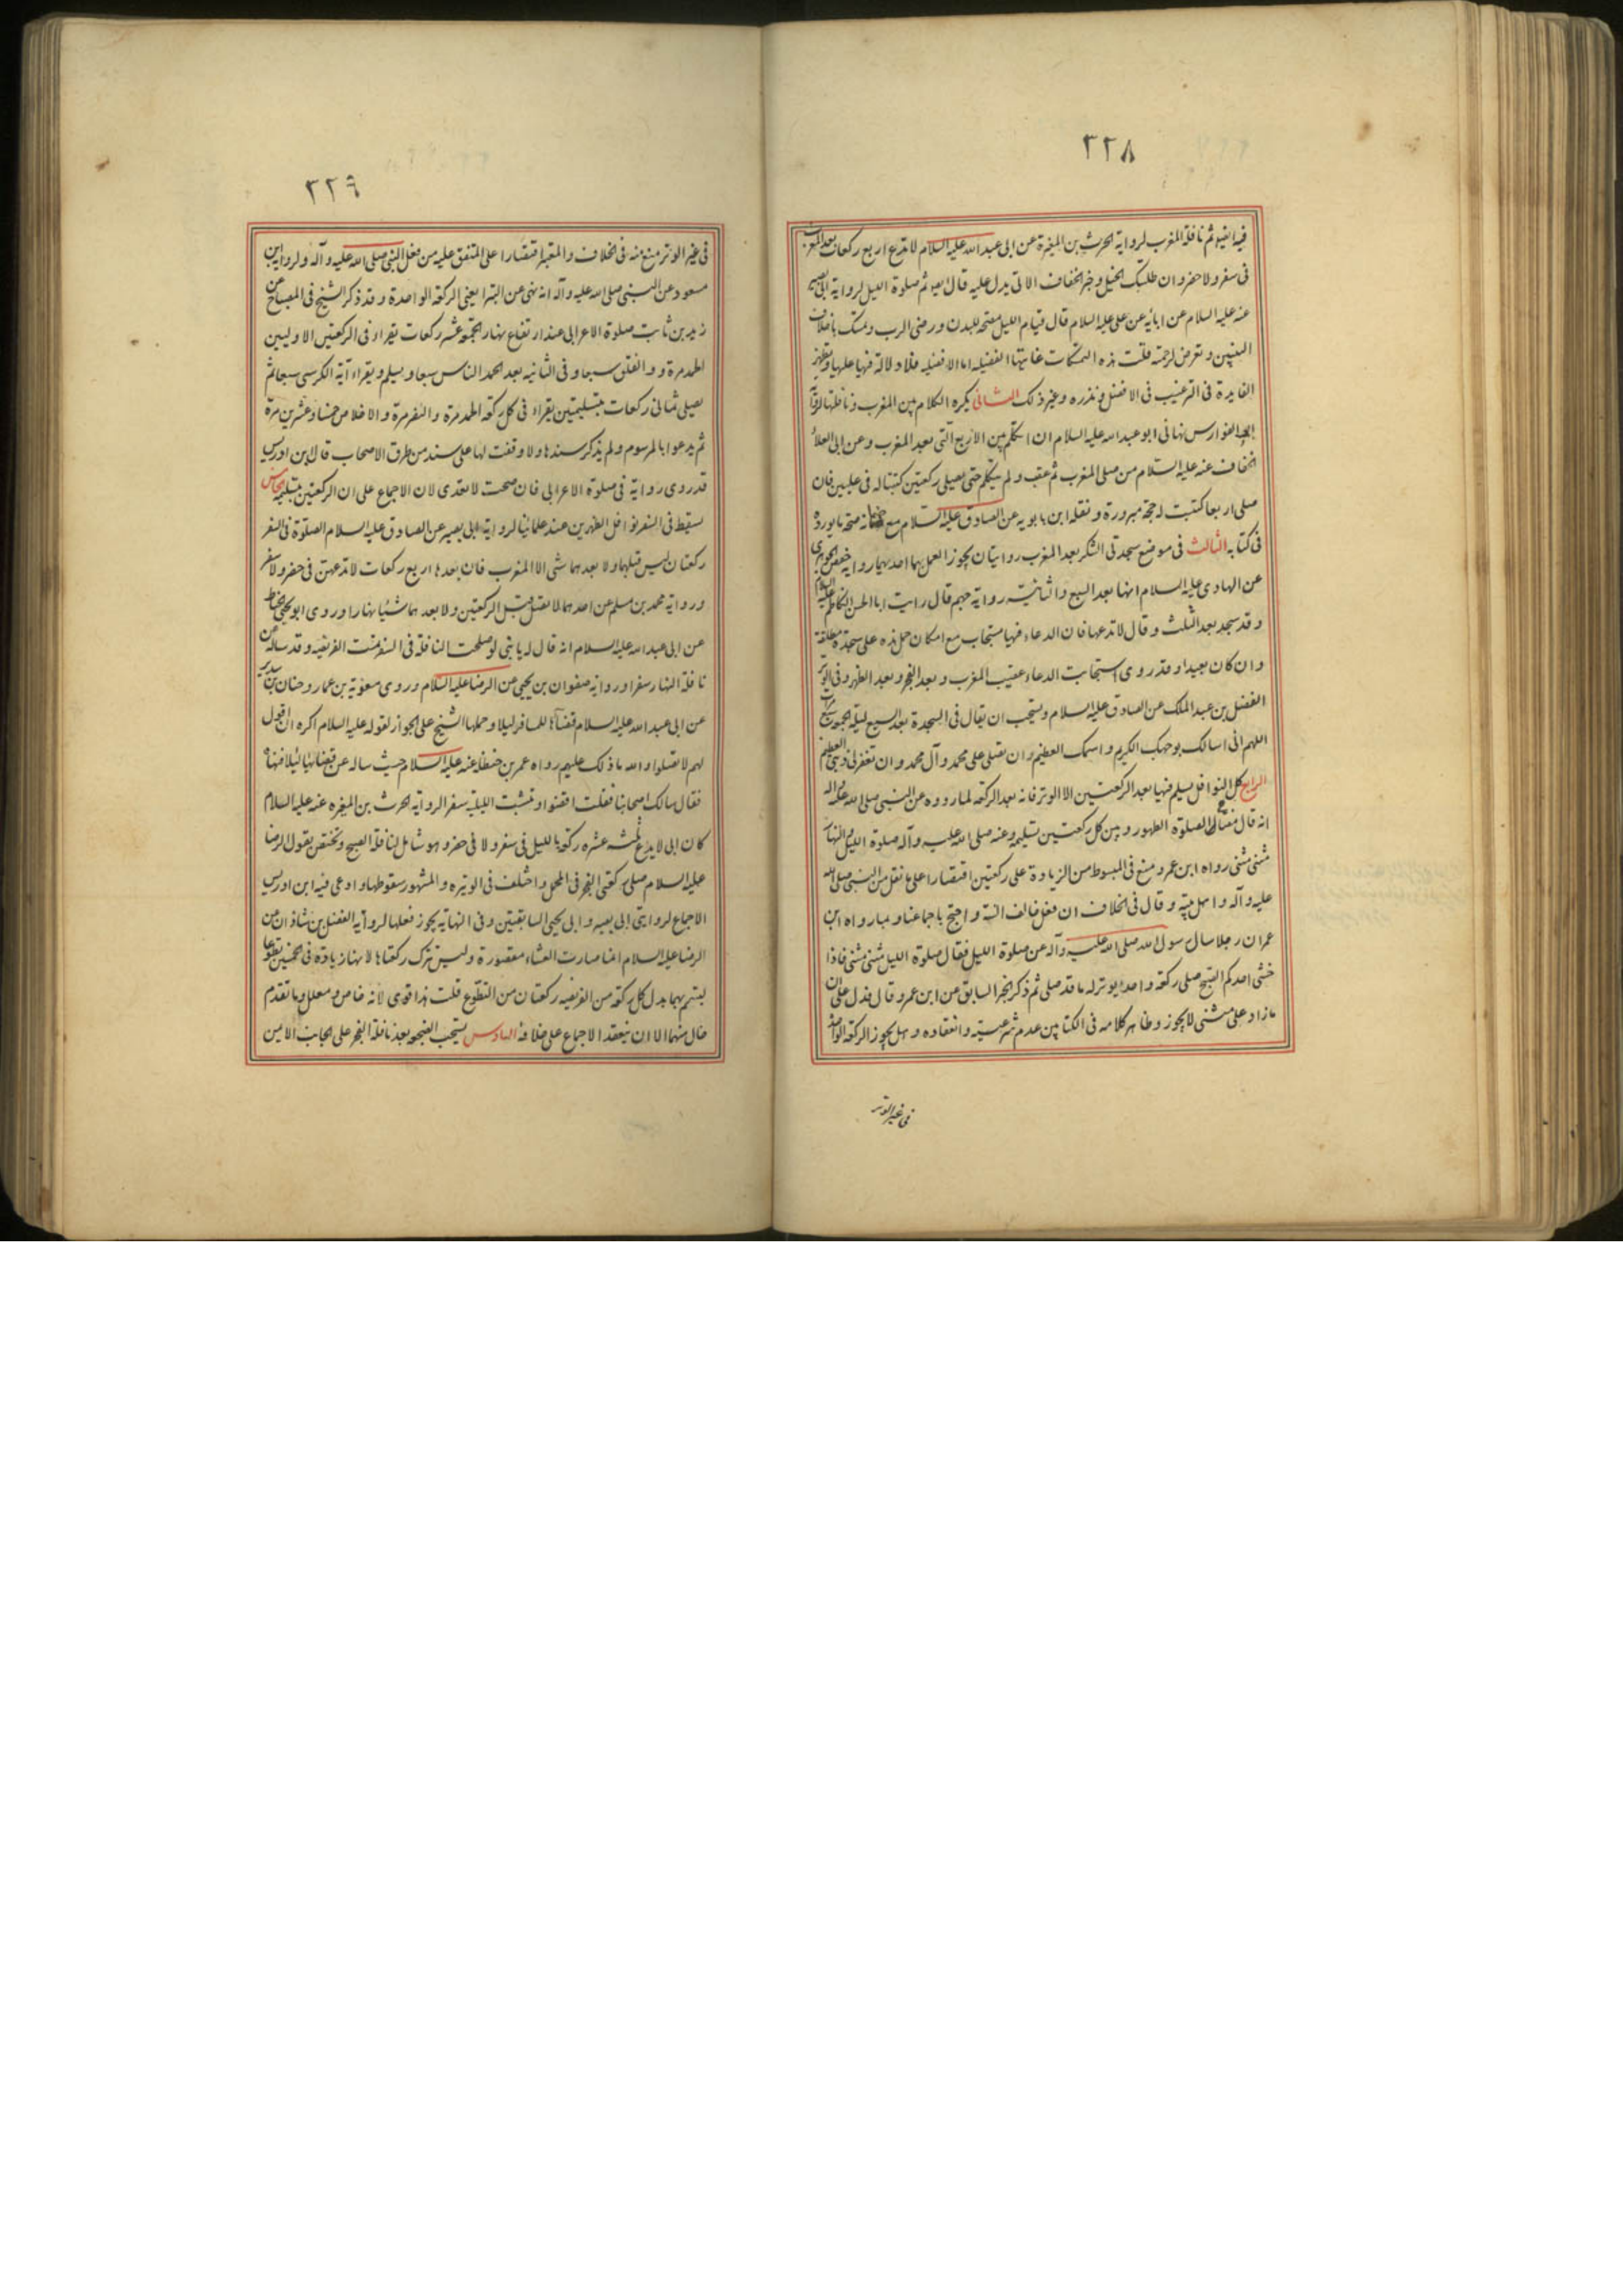 ٢٢٨
فيه ايضا ثم نافلة المغرب لرواية الحرث بن المغيرة عن ابى عبد الله عليه السلام لا تدع اربع ركعات بعد المغرب
فى سفر ولا حضر وان طلبتك الخيل وخبر الخفاف الاتى يدل عليه قال ثم صلوة الليل لرواية ابى بصير
عنه عليه السلام عن ابائه عن على عليه السلام قال قيام الليل مصحة للبدن ورضى الرب وتمسك باخلاق
النبيين وتعرض لرحمته قلت هذه التمسكات غايتها الفضيلة اما الافضلية فلا دلالة فيها عليها وتظهر
الفايدة فى الترغيب فى الافضل ونذره وغير ذلك الثانى يكره الكلام بين المغرب ونافلتها لرواية
ابى الفوارس نهانى ابو عبد الله عليه السلام ان اتكلم بين الاربع التى بعد المغرب وعن ابى العلاء
الخفاف عنه عليه السلام من صلى المغرب ثم عقب ولم يتكلم حتى يصلى ركعتين كتبتا له فى عليين فان
صلى اربعا كتبت له حجة مبرورة ونقله ابن بابويه عن الصادق عليه السلام مع ضمانه صحة ما يورده
فى كتابه الثالث فى موضع سجدتى الشكر بعد المغرب روايتان يجوز العمل بهما احديهما رواية حفص الجوهرى
عن الهادى عليه السلام انها بعد السبع والثانية رواية جهم قال رايت ابا الحسن الكاظم عليه السلام
وقد سجد بعد الثلث وقال لا تدعها فان الدعاء فيها مستجاب مع امكان حمل هذه على سجدة مطلقة
وان كان بعيدا وقد روى استجابت الدعاء عقيب المغرب وبعد الفجر وبعد الظهر وفى الوتر
الفضل بن عبد الملك عن الصادق عليه السلام ويستحب ان يقال فى السجدة بعد السبع ليلة الجمعة سبع مرات
اللهم انى اسالك بوجهك الكريم واسمك العظيم ان تصلى على محمد وآل محمد وان تغفر لى ذنبى العظيم
الرابع كل النوافل يسلم فيها بعد الركعتين الا الوتر فانه بعد الركعة لما رووه عن النبى صلى الله عليه وآله
انه قال مفتاح الصلوة الطهور وبين كل ركعتين تسليمة وعنه صلى الله عليه وآله صلوة الليل والنهار
مثنى مثنى رواه ابن عمر ومنع فى المبسوط من الزيادة على ركعتين اقتصارا على ما نقل من النبى صلى الله
عليه وآله واهل بيته وقال فى الخلاف ان فعل خالف السنة واحتج باجماعنا وبما رواه ابن
عمر ان رجلا سال رسول الله صلى الله عليه وآله عن صلوة الليل فقال صلوة الليل مثنى مثنى فاذا
خشى احدكم الصبح صلى ركعة واحدا يوتر له ما قد صلى ثم ذكر الخبر السابق عن ابن عمر وقال فدل على ان
ما زاد على مثنى لا يجوز وظاهر كلامه فى الكتابين عدم شرعيته وانعقاده وهل يجوز الركعة الواحدة
فى غير الوتر
٢٢٩
فى غير الوتر منع منه فى الخلاف والمعتبر اقتصارا على المتفق عليه من فعل النبى صلى الله عليه وآله ولرواية ابن
مسعود عن النبى صلى الله عليه وآله انه نهى عن البترا يعنى الركعة الواحدة وقد ذكر الشيخ فى المصباح عن
زيد بن ثابت صلوة الاعرابى عند ارتفاع نهار الجمعة عشر ركعات تقراء فى الركعتين الاوليين
الحمد مرة والفلق سبعا وفى الثانية بعد الحمد الناس سبعا ويسلم ويقراء آية الكرسى سبعا ثم
يصلى ثمانى ركعات بتسليمتين يقراء فى كل ركعة الحمد مرة والنصر مرة والاخلاص خمسا وعشرين مرة
ثم يدعوا بالمرسوم ولم يذكر سندها ولا وقفت لها على سند من طرق الاصحاب قال ابن ادريس
قد روى رواية فى صلوة الاعرابى فان صحت لا تعدى لان الاجماع على ان الركعتين بتسليمة الخامس
تسقط فى السفر نوافل الظهرين عند علمائنا لرواية ابى بصير عن الصادق عليه السلام الصلوة فى السفر
ركعتان ليس قبلهما ولا بعدهما شى الا المغرب فان بعدها اربع ركعات لا تدعهن فى حضر ولا سفر
ورواية محمد بن مسلم عن احدهما لا تصل قبل الركعتين ولا بعدهما شيئا نهارا وروى ابو يحيى الحناط
عن ابى عبد الله عليه السلام انه قال له يا بنى لو صلحت النافلة فى السفر تمت الفريضة وقد ساله عن
نافلة النهار سفرا ورواية صفوان بن يحيى عن الرضا عليه السلام وروى معوية بن عمار وحنان بن سدير
عن ابى عبد الله عليه السلام قضاءها للمسافر ليلا وحملها الشيخ على الجواز لقوله عليه السلام اكره ان اقول
لهم لا تصلوا والله ما ذلك عليهم رواه عمر بن حنظلة عنه عليه السلام حيث ساله عن قضائها ليلا
فقال سالك اصحابنا فقلت اقضوا وتثبت الليلية سفرا لرواية الحرث بن المغيره عنه عليه السلام
كان ابى لا يدع ثلث عشره ركعة بالليل فى سفر ولا فى حضر وهو شامل لنافلة الصبح وتختص بقول الرضا
عليه السلام صلى ركعتى الفجر فى المحمل واختلف فى الوتيره والمشهور سقوطها وادعى فيه ابن ادريس
الاجماع لروايتى ابى بصير وابى يحيى السابقتين وفى النهاية يجوز فعلها لرواية الفضل بن شاذان عن
الرضا عليه السلام انما صارت العشاء مقصورة وليس تترك ركعتاها لانها زيادة فى الخمسين تطوعا
ليتم بهما بدل كل ركعة من الفريضه ركعتان من التطوع قلت هذا قوى لانه خاص ومعلل وما تقدم
خال منهما الا ان ينعقد الاجماع على خلافه السادس يستحب الضجعة بعد نافلة الفجر على الجانب الايمن